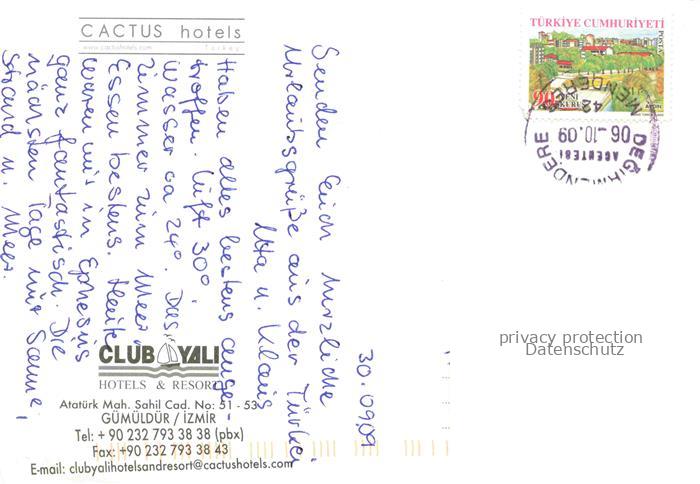 CACTUS hotels
www.cactushotels.com Turkey
TÜRKİYE CUMHURİYETİ
POSTA
90 YENİ KURUŞ
AYDIN
DEĞİRMENDERE
AGENTESİ
06 -10.09
MENDERES
30.09.09
Senden Euch herzliche
Urlaubsgrüße aus der Türkei
Uta u. Klaus
Haben alles bestens ange-
troffen. Luft 30°,
Wasser ca 24°. Das
Zimmer zum Meer.
Essen bestens. Heute
waren wir in Ephesus
ganz fantastisch. Die
nächsten Tage nur Sonne,
Strand u. Meer.
CLUB YALI
HOTELS & RESORT
Atatürk Mah. Sahil Cad. No: 51 - 53
GÜMÜLDÜR / İZMİR
Tel: + 90 232 793 38 38 (pbx)
Fax: +90 232 793 38 43
E-mail: clubyalihotelsandresort@cactushotels.com
privacy protection
Datenschutz